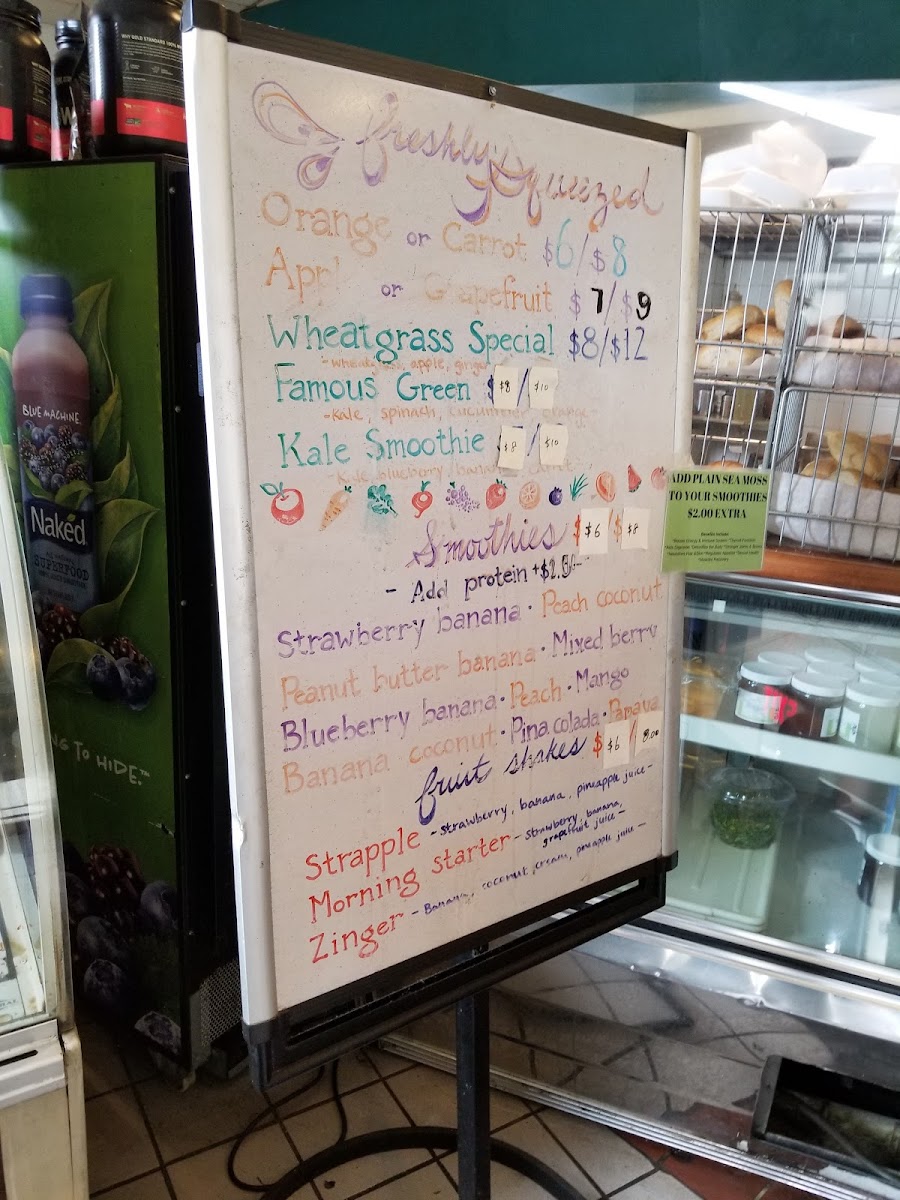 freshly Squeezed
Orange or Carrot $6/$8
or Grapefruit $7/$9
Wheatgrass Special $8/$12
-wheatgrass, apple, ginger
Famous Green $8/$10
-kale, spinach, cucumber, orange-
Kale Smoothie $8/$10
-Kale, blueberry, banana
Smoothies $6/$8
- Add protein +$
Strawberry banana · Peach coconut
Peanut butter banana · Mixed berry
Blueberry banana · Peach · Mango
Banana coconut · Pina colada · Papaya
fruit shakes $6/8.00
Strapple -strawberry, banana, pineapple juice-
Morning starter -strawberry, banana,
grapefruit juice-
Zinger -Banana, coconut cream, pineapple juice-
ADD PLAIN SEA MOSS
TO YOUR SMOOTHIES
$2.00 EXTRA
Benefits Include:
BLUE MACHINE
Naked
SUPERFOOD
NG TO HIDE.™